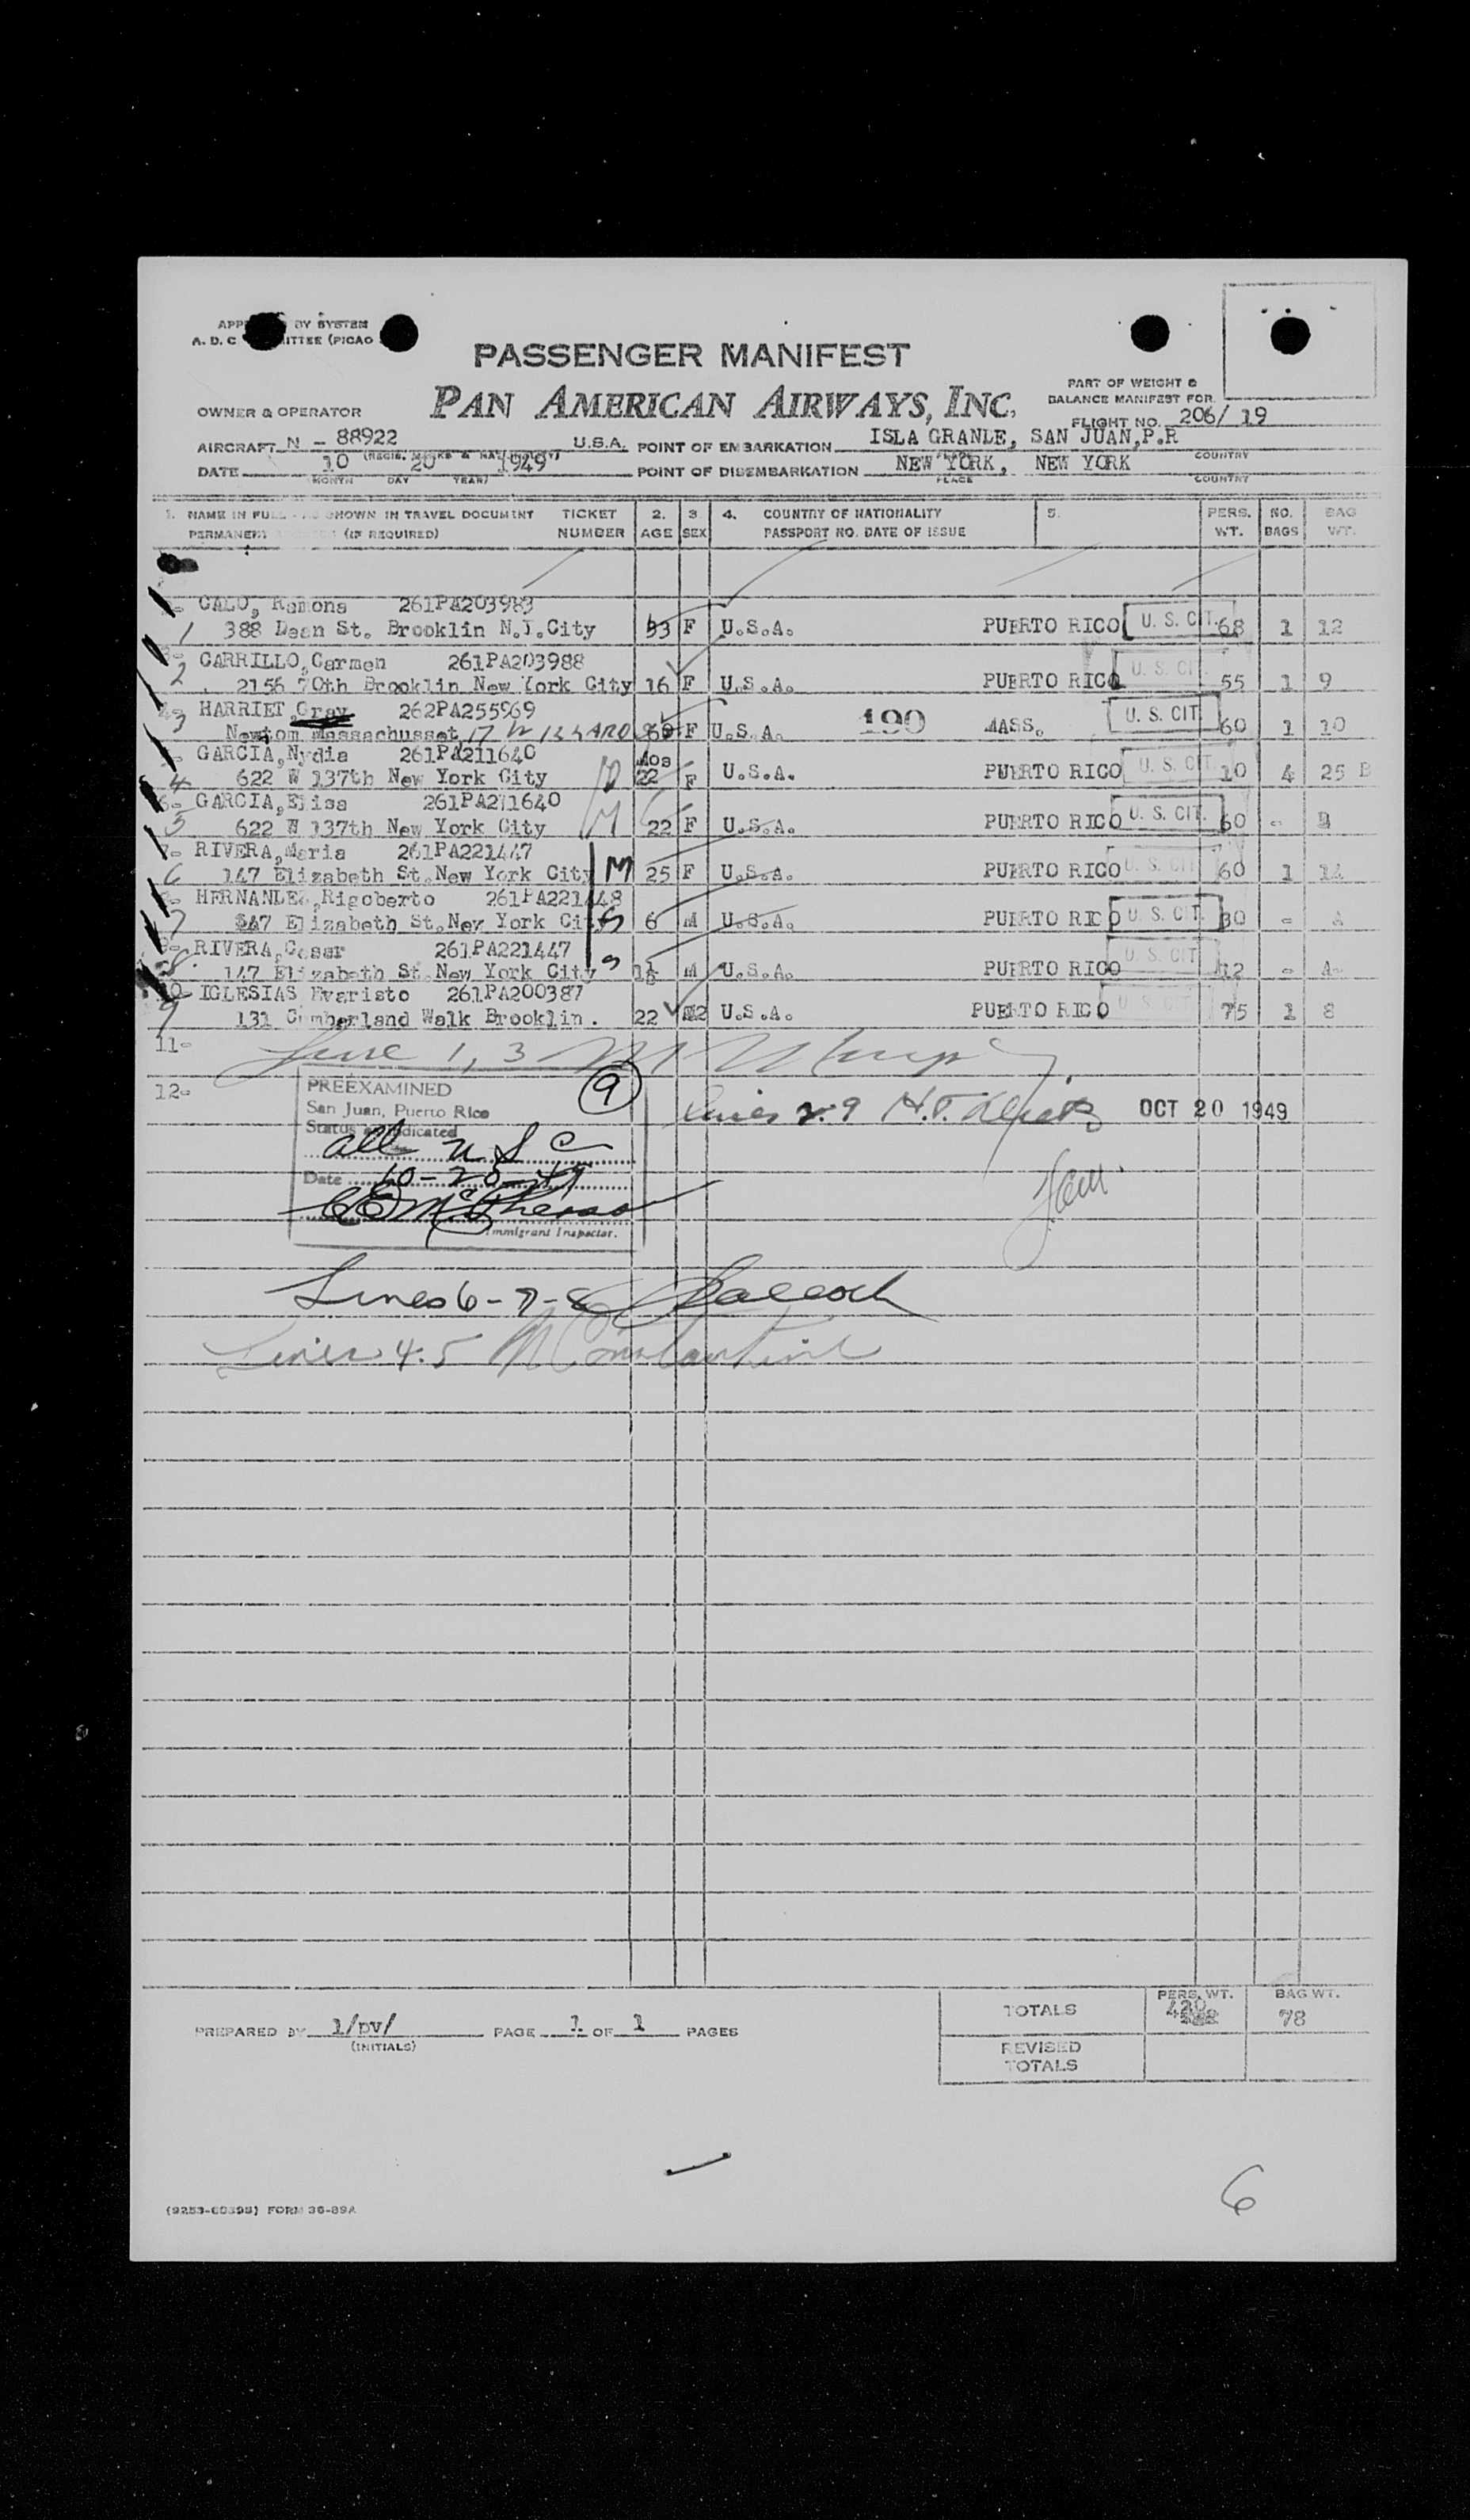 BY SYSTEM
A. D. C ITTEE (PICAO
PASSENGER MANIFEST
PAN AMERICAN AIRWAYS, INC.
PART OF WEIGHT &
BALANCE MANIFEST FOR
OWNER & OPERATOR
FLIGHT NO. 206/ 19
AIRCRAFT N - 88922 U.S.A. POINT OF EMBARKATION ISLA GRANDE, SAN JUAN,P.R
COUNTRY
DATE 10 20 1949 POINT OF DISEMBARKATION NEW YORK, NEW YORK
MONTH DAY YEAR) PLACE COUNTRY
1. NAME IN FULL SHOWN IN TRAVEL DOCUMENT TICKET 2. 3 4. COUNTRY OF NATIONALITY 5. PERS. NO. BAG
PERMANENT (IF REQUIRED) NUMBER AGE SEX PASSPORT NO. DATE OF ISSUE WT. BAGS WT.
CALO, Ramona 261PA203983
1 388 Dean St. Brooklin N.Y.City 53 F U.S.A. PUERTO RICO U. S. CIT. 68 1 12
CARRILLO,Carmen 261PA203988
2 2156 70th Brooklin New York City 16 F U.S.A. PUERTO RICO U. S. CIT. 55 1 9
HARRIET,Gray 262PA255969
3 Newton Massachusset 17 WILLARD F U.S.A. 190 MASS. U. S. CIT. 60 1 10
GARCIA,Nydia 261PA211640 Mos
4 622 W 137th New York City 22 F U.S.A. PUERTO RICO U. S. CIT. 10 4 25 B
6- GARCIA,Elisa 261PA211640
5 622 W 137th New York City 22 F U.S.A. PUERTO RICO U. S. CIT. 60 - B
7- RIVERA,Maria 261PA221447
6 147 Elizabeth St.New York City M 25 F U.S.A. PUERTO RICO U. S. CIT. 60 1 14
HERNANDEZ,Rigoberto 261PA221448
7 147 Elizabeth St.New York City S 6 M U.S.A. PUERTO RICO U. S. CIT. 30 - A
9- RIVERA,Cesar 261PA221447
8. 147 Elizabeth St.New York City S M U.S.A. PUERTO RICO U. S. CIT. 12 - A-
10 IGLESIAS Evaristo 261PA200387
9 131 Cumberland Walk Brooklin. 22 U.S.A. PUERTO RICO U. S. CIT. 75 1 8
11- Line 1, 3
12- PREEXAMINED 9
San Juan, Puerto Rico Lines 2.9 OCT 20 1949
Status as indicated
all U S C
Date 10-20-49
Immigrant Inspector.
Lines 6-7-8
Lines 4.5 M Constantine
TOTALS PERS. WT. 420 BAG WT. 78
PREPARED BY 1/pv/ PAGE 1 OF 1 PAGES
(INITIALS)
REVISED
TOTALS
6
FORM 36-89A